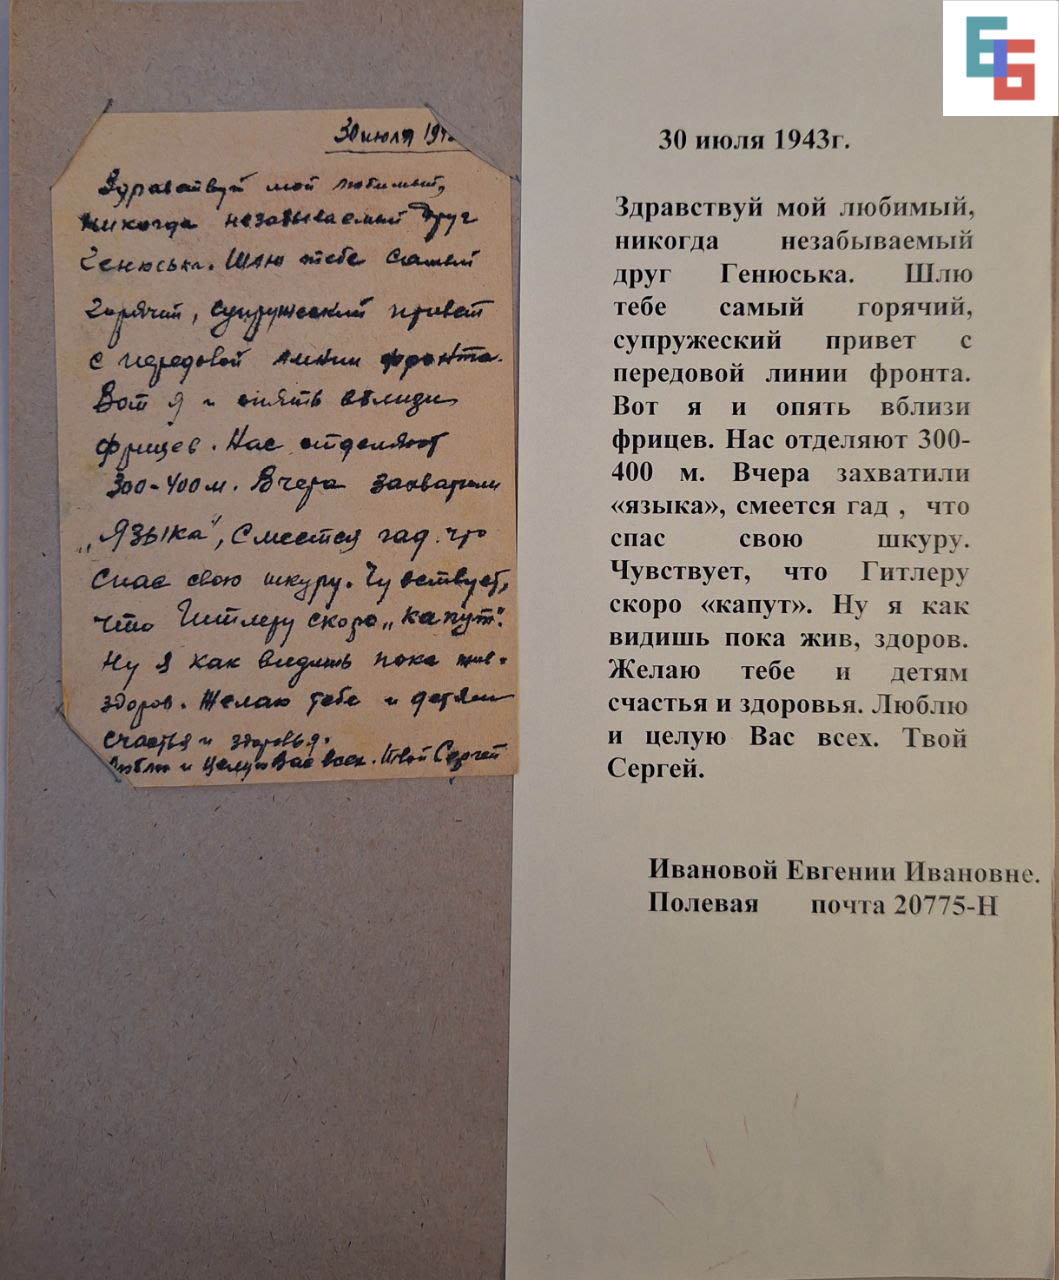 30 июля 19
Здравствуй мой любимый,
никогда незабываемый друг
Генюська. Шлю тебе самый
горячий, супружеский привет
с передовой линии фронта.
Вот я и опять вблизи
фрицев. Нас отделяют
300-400 м. Вчера захватили
„Языка", Смеется гад. что
спас свою шкуру. Чувствует,
что Гитлеру скоро „капут".
Ну я как видишь пока жив.
здоров. Желаю тебе и детям
счастья и здоровья.
Люблю и целую Вас всех. Твой Сергей
ЕБ
30 июля 1943г.
Здравствуй мой любимый,
никогда незабываемый
друг Генюська. Шлю
тебе самый горячий,
супружеский привет с
передовой линии фронта.
Вот я и опять вблизи
фрицев. Нас отделяют 300-
400 м. Вчера захватили
«языка», смеется гад , что
спас свою шкуру.
Чувствует, что Гитлеру
скоро «капут». Ну я как
видишь пока жив, здоров.
Желаю тебе и детям
счастья и здоровья. Люблю
и целую Вас всех. Твой
Сергей.
Ивановой Евгении Ивановне.
Полевая почта 20775-Н